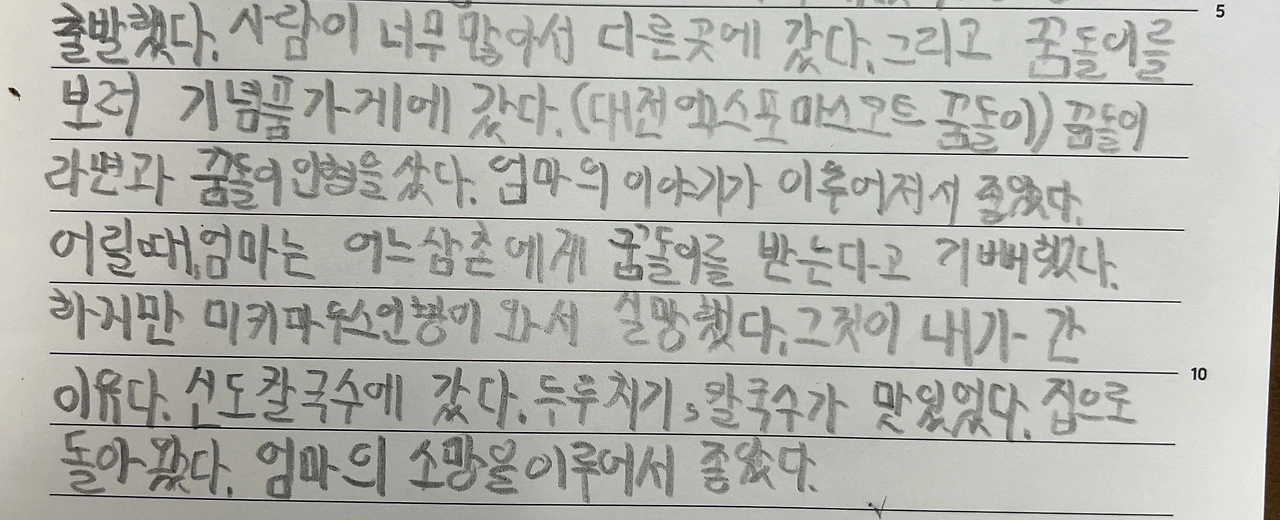 5
출발했다. 사람이 너무 많아서 다른 곳에 갔다. 그리고 꿈돌이를
보러 기념품 가게에 갔다. (대전 엑스포 마스코트 꿈돌이) 꿈돌이
라면과 꿈돌이 인형을 샀다. 엄마의 이야기가 이루어져서 좋았다.
어릴때, 엄마는 어느 삼촌에게 꿈돌이를 받는다고 기뻐했다.
하지만 미키마우스인형이 와서 실망했다. 그것이 내가 간
10
이유다. 신도칼국수에 갔다. 두루치기, 칼국수가 맛있었다. 집으로
돌아왔다. 엄마의 소망을 이루어서 좋았다.